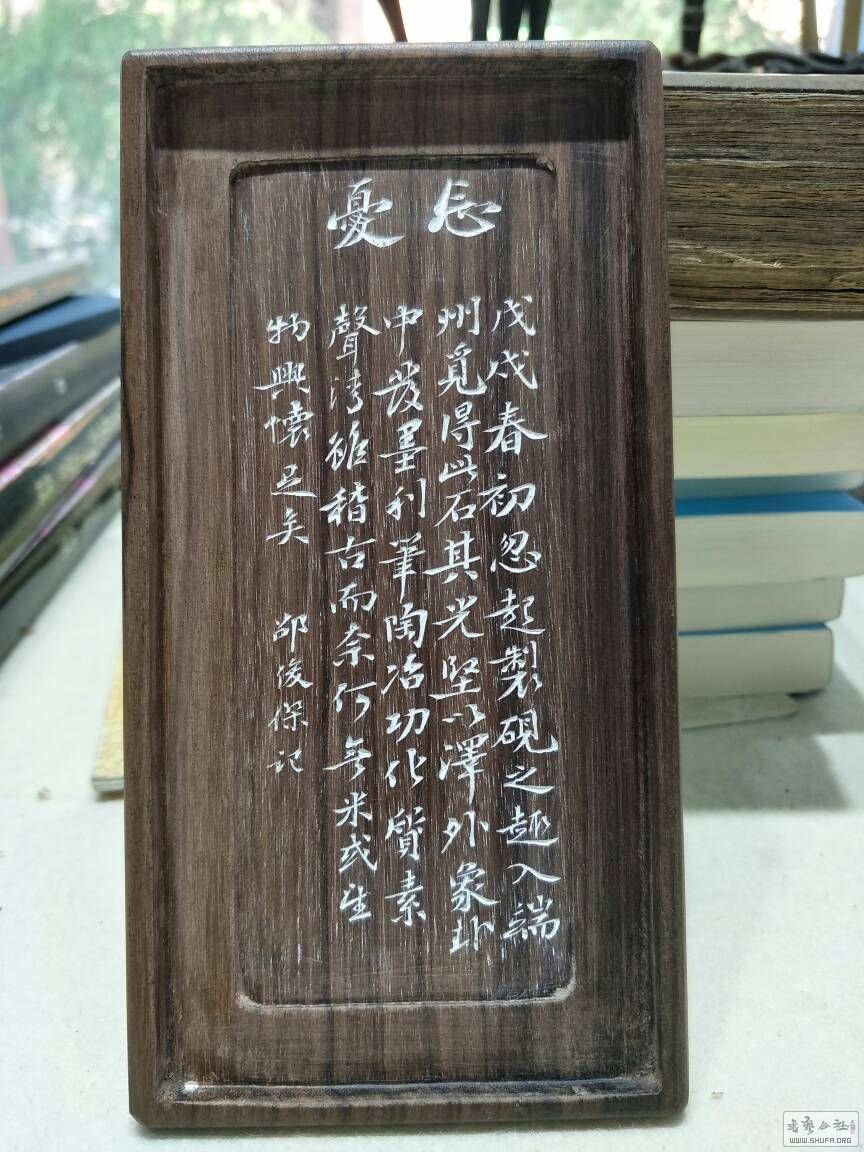 忘憂
戊戌春初忽起製硯之趣入端
州覓得此石其光堅以澤外象
中發墨利筆陶冶功化質素
聲清能稽古而奈何無米或望
物興懷足矣
邵俊保记
書藝公社
WWW.SHUFA.ORG